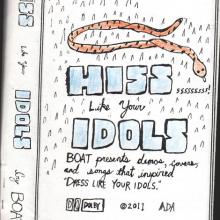 HISS
Like Your
IDOLS
by BOAT
HISS
ssssssss!
Like Your
IDOLS
BOAT presents demos, covers,
and songs that inspired
"DRESS LIKE YOUR IDOLS."
DOLBY
©2011 ADA